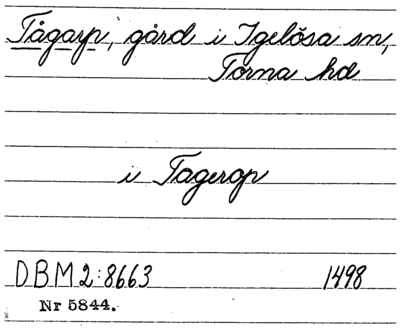 Tågarp, gård i Igelösa sn,
Torna hd
i Tagerop
DBM 2:8663 1498
Nr 5844.